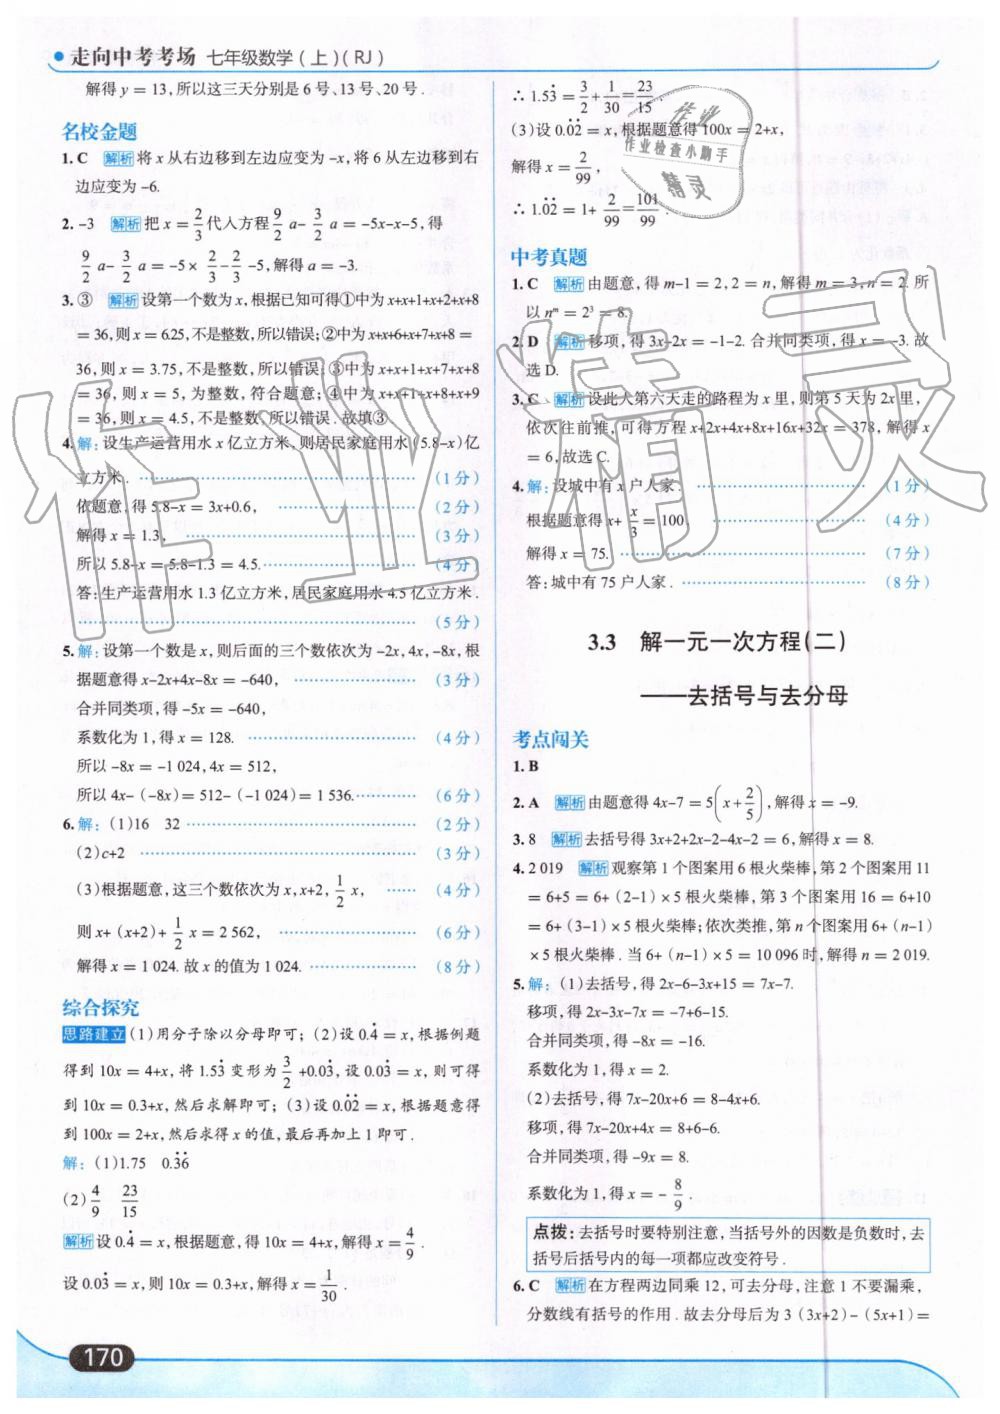 走向中考考场 七年级数学(上)(RJ)
解得 y = 13,所以这三天分别是 6 号、13 号、20 号.
名校金题
1. C 解析 将 x 从右边移到左边应变为 -x,将 6 从左边移到右
边应变为 -6.
2. -3 解析 把 x = 2/3 代入方程 9/2 a- 3/2 a = -5x-x-5,得
9/2 a- 3/2 a = -5× 2/3 - 2/3 -5,解得 a = -3.
3. ③ 解析 设第一个数为 x,根据已知可得①中为 x+x+1+x+2+x+8
= 36,则 x = 6.25,不是整数,所以错误;②中为 x+x+6+x+7+x+8 =
36,则 x = 3.75,不是整数,所以错误;③中为 x+x+1+x+7+x+8
= 36,则 x = 5,为整数,符合题意;④中为 x+x+1+x+8+x+9
= 36,则 x = 4.5,不是整数,所以错误.故填③.
4. 解:设生产运营用水 x 亿立方米,则居民家庭用水(5.8-x)亿
立方米. (1 分)
依题意,得 5.8-x = 3x+0.6, (2 分)
解得 x = 1.3, (3 分)
所以 5.8-x = 5.8-1.3 = 4.5. (4 分)
答:生产运营用水 1.3 亿立方米,居民家庭用水 4.5 亿立方米.
(5 分)
5. 解:设第一个数是 x,则后面的三个数依次为 -2x,4x,-8x,根
据题意得 x-2x+4x-8x = -640, (3 分)
合并同类项,得 -5x = -640,
系数化为 1,得 x = 128. (4 分)
所以 -8x = -1 024,4x = 512,
所以 4x-(-8x)= 512-(-1 024)= 1 536. (6 分)
6. 解:(1)16 32 (2 分)
(2)c+2 (3 分)
(3)根据题意,这三个数依次为 x,x+2, 1/2 x, (4 分)
则 x+(x+2)+ 1/2 x = 2 562, (6 分)
解得 x = 1 024.故 x 的值为 1 024. (8 分)
综合探究
思路建立 (1)用分子除以分母即可;(2)设 0.4̇ = x,根据例题
得到 10x = 4+x,将 1.53̇ 变形为 3/2 +0.03̇,设 0.03̇ = x,则可得
到 10x = 0.3+x,然后求解即可;(3)设 0.0̇2̇ = x,根据题意得
到 100x = 2+x,然后求得 x 的值,最后再加上 1 即可.
解:(1)1.75 0.3̇6̇
(2) 4/9 23/15
解析 设 0.4̇ = x,根据题意,得 10x = 4+x,解得 x = 4/9 .
设 0.03̇ = x,则 10x = 0.3+x,解得 x = 1/30 .
∴ 1.53̇ = 3/2 + 1/30 = 23/15 .
(3)设 0.0̇2̇ = x,根据题意得 100x = 2+x,
解得 x = 2/99 ,
∴ 1.0̇2̇ = 1+ 2/99 = 101/99 .
中考真题
1. C 解析 由题意,得 m-1 = 2,2 = n,解得 m = 3,n = 2.所
以 nᵐ = 2³ = 8.
2. D 解析 移项,得 3x-2x = -1-2.合并同类项,得 x = -3.故
选 D.
3. C 解析 设此人第六天走的路程为 x 里,则第 5 天为 2x 里,
依次往前推,可得方程 x+2x+4x+8x+16x+32x = 378,解得 x
= 6,故选 C.
4. 解:设城中有 x 户人家. (1 分)
根据题意得 x+ x/3 = 100, (4 分)
解得 x = 75. (7 分)
答:城中有 75 户人家. (8 分)
3.3 解一元一次方程(二)
——去括号与去分母
考点闯关
1. B
2. A 解析 由题意得 4x-7 = 5(x+ 2/5),解得 x = -9.
3. 8 解析 去括号得 3x+2+2x-2-4x-2 = 6,解得 x = 8.
4. 2 019 解析 观察第 1 个图案用 6 根火柴棒,第 2 个图案用 11
= 6+5 = 6+(2-1)×5 根火柴棒,第 3 个图案用 16 = 6+10
= 6+(3-1)×5 根火柴棒;依次类推,第 n 个图案用 6+(n-1)
×5 根火柴棒.当 6+(n-1)×5 = 10 096 时,解得 n = 2 019.
5. 解:(1)去括号,得 2x-6-3x+15 = 7x-7.
移项,得 2x-3x-7x = -7+6-15.
合并同类项,得 -8x = -16.
系数化为 1,得 x = 2.
(2)去括号,得 7x-20x+6 = 8-4x+6.
移项,得 7x-20x+4x = 8+6-6.
合并同类项,得 -9x = 8.
系数化为 1,得 x = - 8/9 .
点拨:去括号时要特别注意,当括号外的因数是负数时,去
括号后括号内的每一项都应改变符号.
6. C 解析 在方程两边同乘 12,可去分母,注意 1 不要漏乘,
分数线有括号的作用.故去分母后为 3(3x+2)-(5x+1)=
170
作业
作业检查小助手
精灵
作业精灵